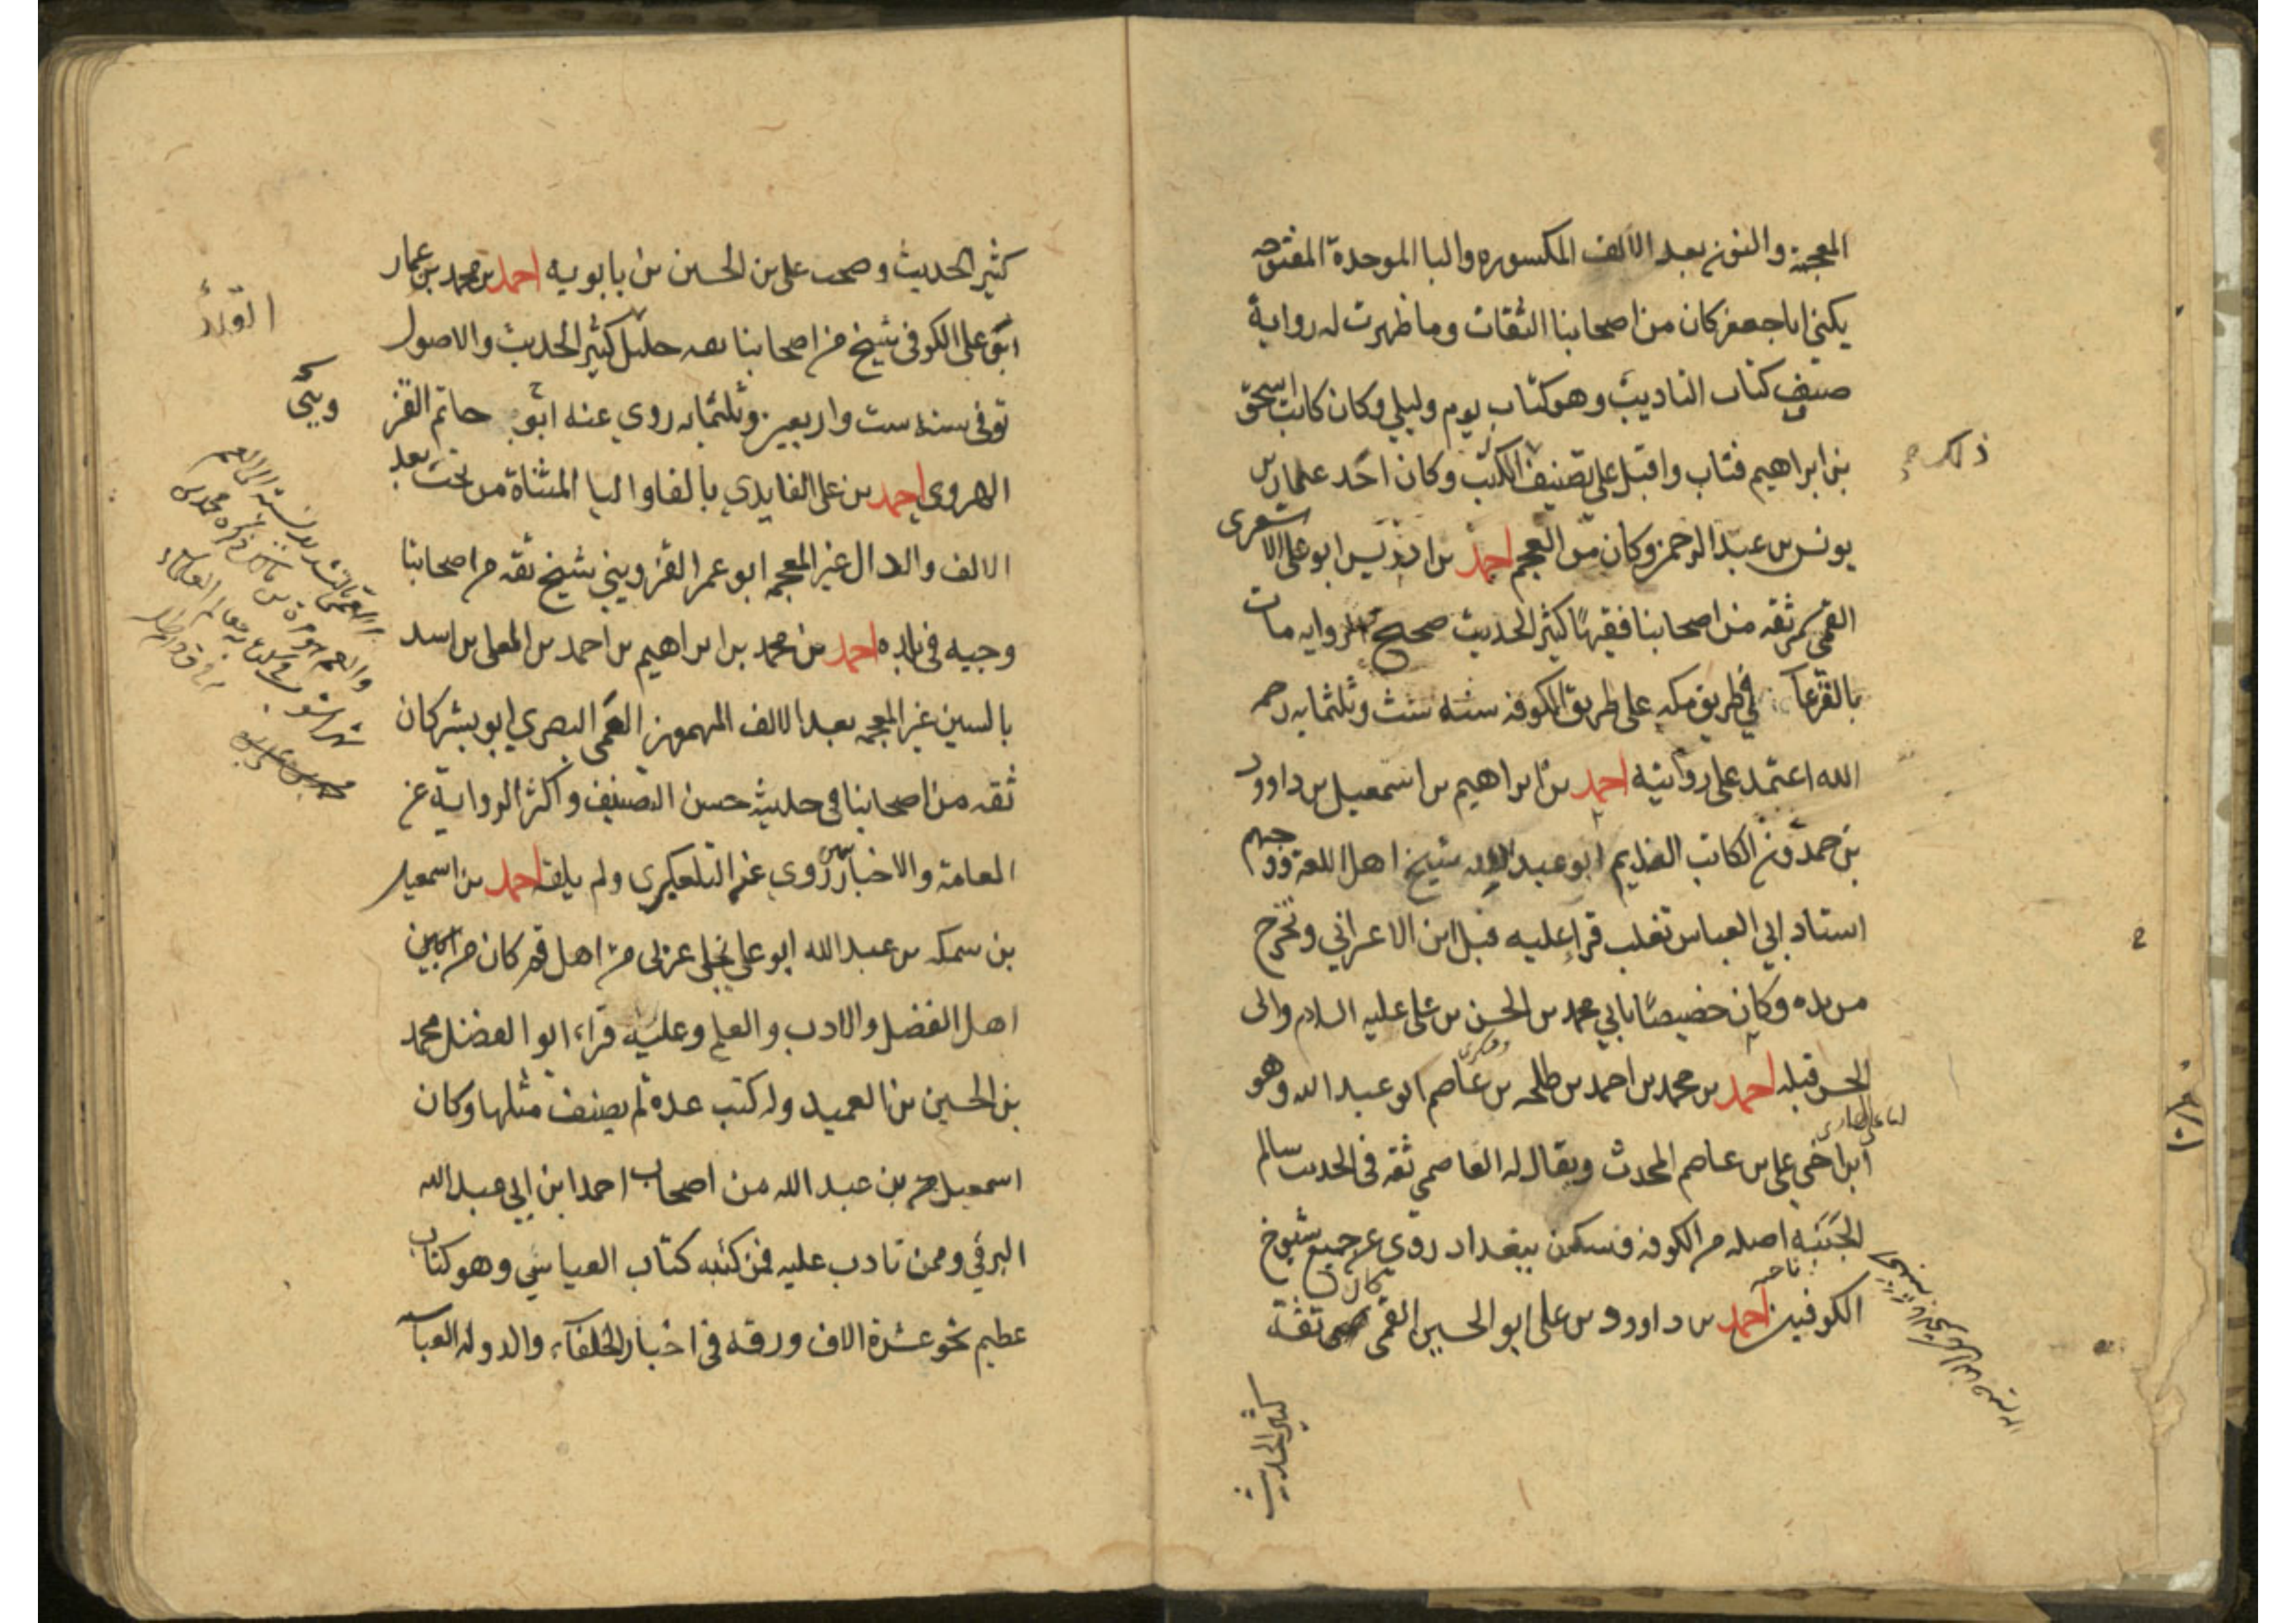 المعجمة والنون بعد الالف المكسوره والبا الموحدة المفتوحه
يكنى ابا جعفر كان من اصحابنا الثقات وما ظهرت له رواية
صنف كتاب التاديب وهو كتاب يوم وليلي وكان كاتب اسحق
بن ابراهيم فتاب واقبل على تصنيف الكتب وكان احد غلمان
يونس بن عبد الرحمن وكان من العجم احمد بن ادريس ابو على الاشعرى
القمى ثقه من اصحابنا فقيها كثير الحديث صحيح الروايه مات
بالقرعا في طريق مكه على طريق الكوفه سنه ست وثلثمايه رحمه
الله اعتمد على روايته احمد بن ابراهيم بن اسمعيل بن داوود
بن حمدون الكاتب النديم ابو عبد الله شيخ اهل اللغة ووجههم
استاد ابي العباس تغلب قرا عليه قبل ابن الاعرابي وتخرج
من يده وكان خصيصا بابي محمد بن الحسن بن على عليه السلام والى
الحسن قبله احمد بن محمد بن احمد بن طلحه بن عاصم ابو عبد الله وهو
ابن اخى على بن عاصم المحدث ويقال له العاصمي ثقه فى الحديث سالم
الجنبة اصله من الكوفه فسكن ببغداد روى عن جميع شيوخ
الكوفيين احمد بن داوود بن على ابو الحسين القمى كان ثقة
كثير الحديث
كثير الحديث وصحب على بن الحسين بن بابويه احمد بن محمد بن عمار
ابو على الكوفى شيخ من اصحابنا ثقه جليل كثير الحديث والاصول
توفى سنه ست واربعين وثلثمايه روى عنه ابو حاتم القز
ويني
الهروى احمد بن على الفايدي بالفا واليا المثناة من تحت بعد
الالف والدال غير المعجمه ابو عمر القزويني شيخ ثقه من اصحابنا
وجيه فى بلده احمد بن محمد بن ابراهيم بن احمد بن المعلى بن اسد
بالسين غير المعجمه بعد الالف المهموز العمى البصري ابو بشر كان
ثقه من اصحابنا فى حديثه حسن التصنيف واكثر الرواية عن
العامة والاخباريين روى عنه التلعكبرى ولم يلقه احمد بن اسمعيل
بن سمكه بن عبد الله ابو على بجلى عربى من اهل قم كان من
اهل الفضل والادب والعلم وعليه قراء ابو الفضل محمد
بن الحسين بن العميد وله كتب عدة لم يصنف مثلها وكان
اسمعيل بن عبد الله من اصحاب احمد ابن ابي عبد الله
البرقي وممن تادب عليه فمن كتبه كتاب العباسي وهو كتاب
عظيم نحو عشرة الاف ورقه فى اخبار الخلفآء والدولة العبآ